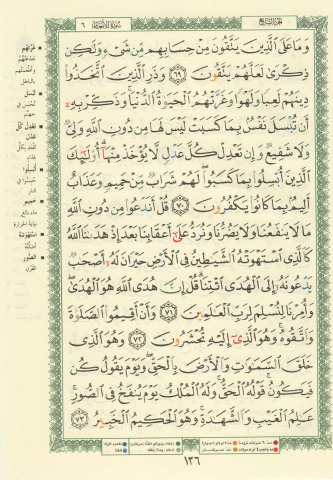 الجزء السابع
سورة الأنعام ٦
وَمَا عَلَى الَّذِينَ يَتَّقُونَ مِنْ حِسَابِهِم مِّن شَيْءٍ وَلَٰكِن
ذِكْرَىٰ لَعَلَّهُمْ يَتَّقُونَ ٦٩ وَذَرِ الَّذِينَ اتَّخَذُوا
دِينَهُمْ لَعِبًا وَلَهْوًا وَغَرَّتْهُمُ الْحَيَوٰةُ الدُّنْيَا وَذَكِّرْ بِهِ
أَن تُبْسَلَ نَفْسٌ بِمَا كَسَبَتْ لَيْسَ لَهَا مِن دُونِ اللَّهِ وَلِيٌّ
وَلَا شَفِيعٌ وَإِن تَعْدِلْ كُلَّ عَدْلٍ لَّا يُؤْخَذْ مِنْهَا أُولَٰئِكَ
الَّذِينَ أُبْسِلُوا بِمَا كَسَبُوا لَهُمْ شَرَابٌ مِّنْ حَمِيمٍ وَعَذَابٌ
أَلِيمٌ بِمَا كَانُوا يَكْفُرُونَ ٧٠ قُلْ أَنَدْعُوا مِن دُونِ اللَّهِ
مَا لَا يَنفَعُنَا وَلَا يَضُرُّنَا وَنُرَدُّ عَلَىٰ أَعْقَابِنَا بَعْدَ إِذْ هَدَىٰنَا اللَّهُ
كَالَّذِي اسْتَهْوَتْهُ الشَّيَٰطِينُ فِي الْأَرْضِ حَيْرَانَ لَهُ أَصْحَٰبٌ
يَدْعُونَهُ إِلَى الْهُدَى ائْتِنَا قُلْ إِنَّ هُدَى اللَّهِ هُوَ الْهُدَىٰ
وَأُمِرْنَا لِنُسْلِمَ لِرَبِّ الْعَٰلَمِينَ ٧١ وَأَنْ أَقِيمُوا الصَّلَوٰةَ
وَاتَّقُوهُ وَهُوَ الَّذِي إِلَيْهِ تُحْشَرُونَ ٧٢ وَهُوَ الَّذِي
خَلَقَ السَّمَٰوَٰتِ وَالْأَرْضَ بِالْحَقِّ وَيَوْمَ يَقُولُ كُن
فَيَكُونُ قَوْلُهُ الْحَقُّ وَلَهُ الْمُلْكُ يَوْمَ يُنفَخُ فِي الصُّورِ
عَٰلِمُ الْغَيْبِ وَالشَّهَٰدَةِ وَهُوَ الْحَكِيمُ الْخَبِيرُ ٧٣
غرّتهم
خدعتهم
بالباطل
تبسل
تعدل كل
عدل
أبسلوا
حميم
استهوته
أضلته
الصور
القرن
١٣٦